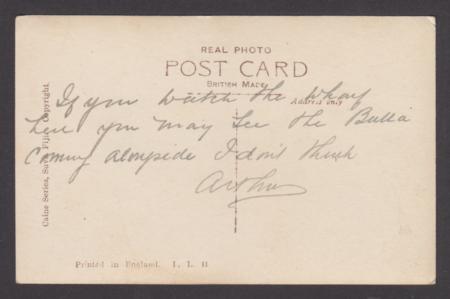 REAL PHOTO
POST CARD
BRITISH MADE
Address only
If you watch the Wharf
here you may see the Bulla
Coming alongside I don't think
Arthur
Caine Series, Suva Fiji, Copyright.
Printed in England.